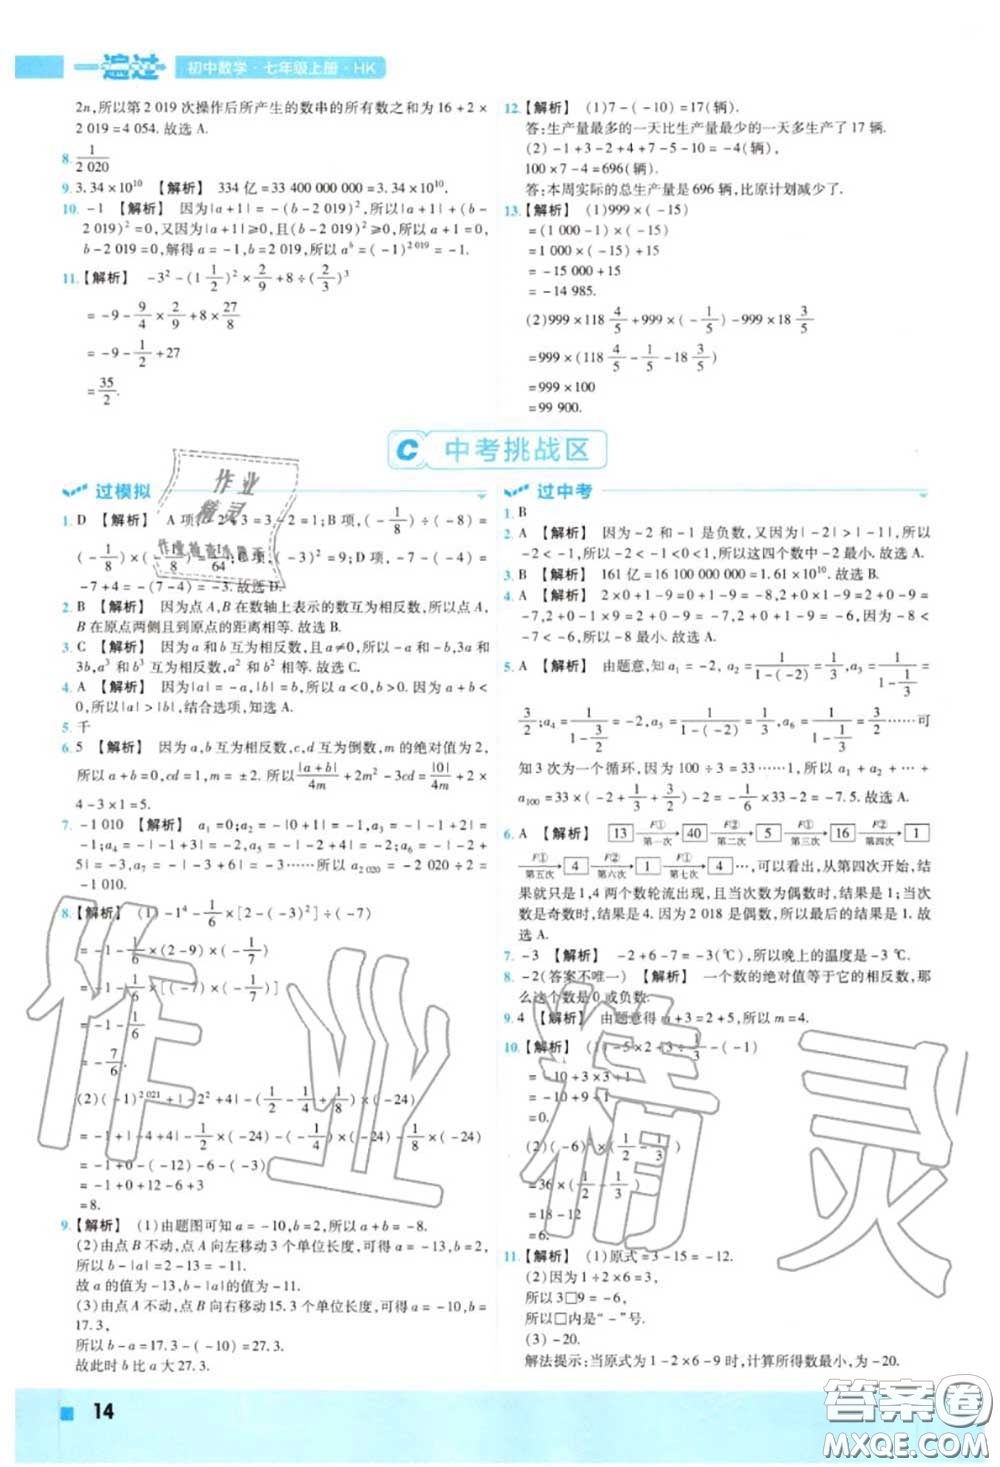 一遍过 初中数学·七年级上册·HK
2n,所以第2 019次操作后所产生的数串的所有数之和为16+2×
2 019=4 054.故选A.
8. 1/2 020
9. 3.34×10¹⁰ 【解析】 334亿=33 400 000 000=3.34×10¹⁰.
10. -1 【解析】 因为|a+1|=-(b-2 019)²,所以|a+1|+(b-
2 019)²=0,又因为|a+1|≥0,且(b-2 019)²≥0,所以a+1=0,
b-2 019=0,解得a=-1,b=2 019,所以aᵇ=(-1)²⁰¹⁹=-1.
11.【解析】 -3²-(1 1/2)²×2/9+8÷(2/3)³
=-9-9/4×2/9+8×27/8
=-9-1/2+27
=35/2.
12.【解析】 (1)7-(-10)=17(辆).
答:生产量最多的一天比生产量最少的一天多生产了17辆.
(2)-1+3-2+4+7-5-10=-4(辆),
100×7-4=696(辆).
答:本周实际的总生产量是696辆,比原计划减少了.
13.【解析】 (1)999×(-15)
=(1 000-1)×(-15)
=1 000×(-15)+15
=-15 000+15
=-14 985.
(2)999×118 4/5+999×(-1/5)-999×18 3/5
=999×(118 4/5-1/5-18 3/5)
=999×100
=99 900.
C 中考挑战区
过模拟
1. D 【解析】 A项,-2+3=3-2=1;B项,(-1/8)÷(-8)=
(-1/8)×(-1/8)=1/64;C项,(-3)²=9;D项,-7-(-4)=
-7+4=-(7-4)=-3.故选D.
2. B 【解析】 因为点A,B在数轴上表示的数互为相反数,所以点A,
B在原点两侧且到原点的距离相等.故选B.
3. C 【解析】 因为a和b互为相反数,且a≠0,所以a和-b,3a和
3b,a³和b³互为相反数,a²和b²相等.故选C.
4. A 【解析】 因为|a|=-a,|b|=b,所以a≤0,b>0.因为a+b<
0,所以|a|>|b|,结合选项,知选A.
5. 千
6. 5 【解析】 因为a,b互为相反数,c,d互为倒数,m的绝对值为2,
所以a+b=0,cd=1,m=±2.所以|a+b|/4m+2m²-3cd=|0|/4m+2×
4-3×1=5.
7. -1 010 【解析】 a₁=0;a₂=-|0+1|=-1,a₃=-|-1+2|=
-1;a₄=-|-1+3|=-2,a₅=-|-2+4|=-2;a₆=-|-2+
5|=-3,a₇=-|-3+6|=-3……所以a₂₀₂₀=-2 020÷2=
-1 010.
8.【解析】 (1)-1⁴-1/6×[2-(-3)²]÷(-7)
=-1-1/6×(2-9)×(-1/7)
=-1-1/6×[(-7)×(-1/7)]
=-1-1/6
=-7/6.
(2)(-1)²⁰²¹+|-2²+4|-(1/2-1/4+1/8)×(-24)
=-1+|-4+4|-1/2×(-24)-(-1/4)×(-24)-1/8×(-24)
=-1+0+12-6-(-3)
=8.
9.【解析】 (1)由题图可知a=-10,b=2,所以a+b=-8.
(2)由点B不动,点A向左移动3个单位长度,可得a=-13,b=2,
所以b-|a|=2-13=-11.
故a的值为-13,b-|a|的值为-11.
(3)由点A不动,点B向右移动15.3个单位长度,可得a=-10,b=
17.3,
所以b-a=17.3-(-10)=27.3.
故此时b比a大27.3.
过中考
1. B
2. A 【解析】 因为-2和-1是负数,又因为|-2|>|-1|,所以
-2<-1,所以-2<-1<0<1,所以这四个数中-2最小.故选A.
3. B 【解析】 161亿=16 100 000 000=1.61×10¹⁰.故选B.
4. A 【解析】 2×0+1-9=0+1-9=-8,2+0×1-9=2+0-9=
-7,2+0-1×9=2+0-9=-7,2+0+1-9=-6.因为-8<
-7<-6,所以-8最小.故选A.
5. A 【解析】 由题意,知a₁=-2, a₂=1/(1-(-2))=1/3,a₃=1/(1-1/3)=
3/2;a₄=1/(1-3/2)=-2,a₅=1/(1-(-2))=1/3,a₆=1/(1-1/3)=3/2……可
知3次为一个循环,因为100÷3=33……1,所以a₁+a₂+…+
a₁₀₀=33×(-2+1/3+3/2)-2=33×(-1/6)-2=-7.5.故选A.
6. A 【解析】 13 F① 第一次 40 F② 第二次 5 F① 第三次 16 F② 第四次 1
F① 第五次 4 F② 第六次 1 F① 第七次 4 …,可以看出,从第四次开始,结
果就只是1,4两个数轮流出现,且当次数为偶数时,结果是1;当次
数是奇数时,结果是4.因为2 018是偶数,所以最后的结果是1.故
选A.
7. -3 【解析】 -2+6-7=-3(℃),所以晚上的温度是-3 ℃.
8. -2(答案不唯一) 【解析】 一个数的绝对值等于它的相反数,那
么这个数是0或负数.
9. 4 【解析】 由题意得m+3=2+5,所以m=4.
10.【解析】 (1)-5×2+3÷1/3-(-1)
=-10+3×3+1
=-10+9+1
=0.
(2)(-6)²×(1/2-1/3)
=36×(1/2-1/3)
=18-12
=6.
11.【解析】 (1)原式=3-15=-12.
(2)因为1÷2×6=3,
所以3□9=-6,
所以□内是“-”号.
(3)-20.
解法提示:当原式为1-2×6-9时,计算所得数最小,为-20.
14
作业精灵
作业精灵
答案圈
MXQE.COM